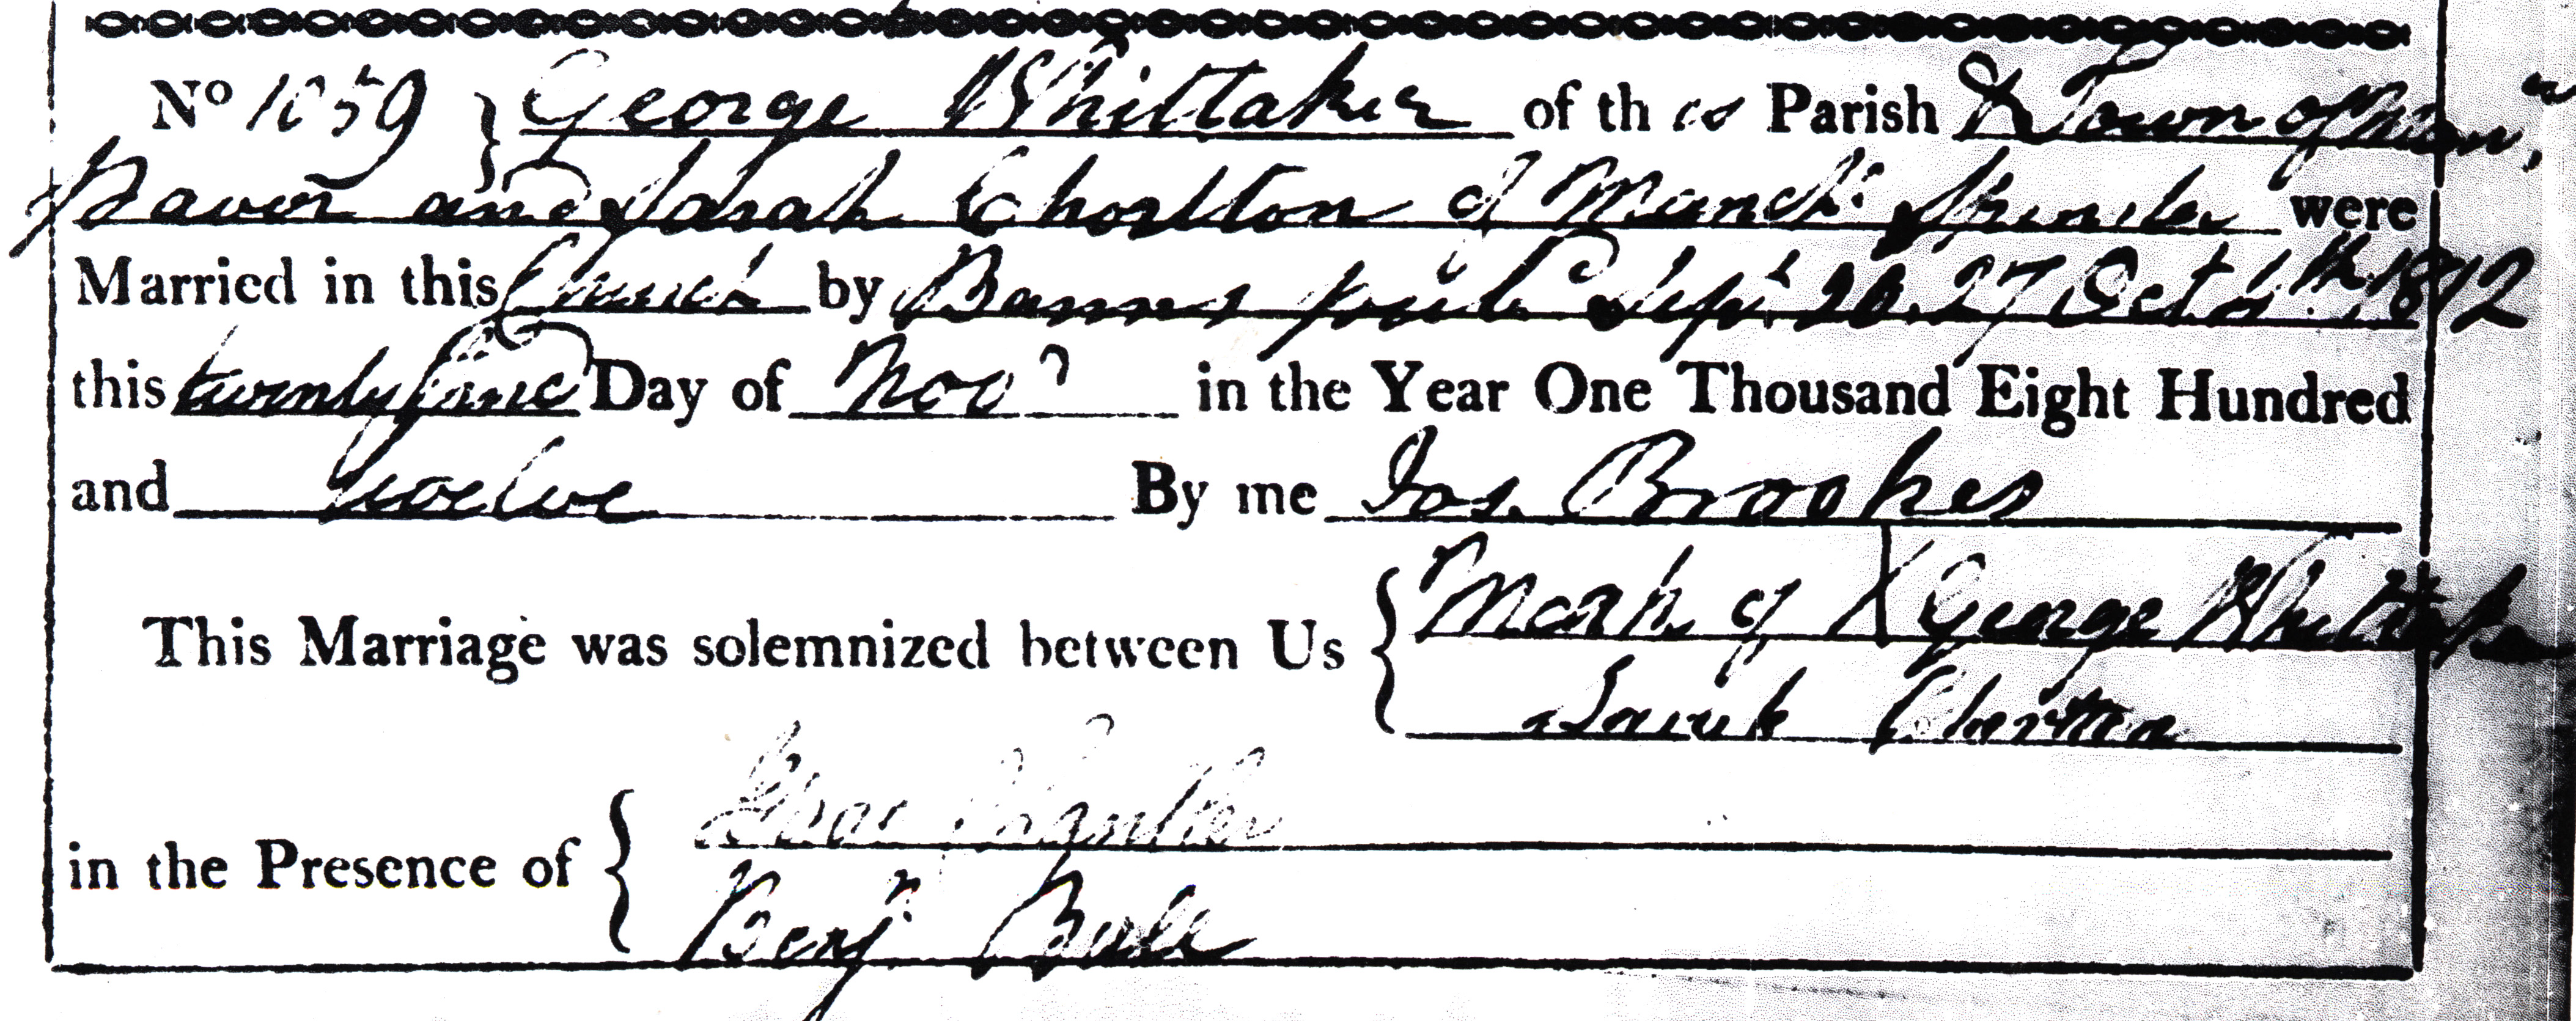 No 1059 } George Whittaker of this Parish & Town of Manr
Pavior and Sarah Chorlton of Manchr Spinster were
Married in this Church by Banns pub Sepr 20. 27 Octr 4th 1812
this twenty Day of Novr in the Year One Thousand Eight Hundred
and Twelve By me Jos. Brookes
This Marriage was solemnized between Us { Mark of X George Whittaker
Sarah Chorlton
in the Presence of {
Benjn